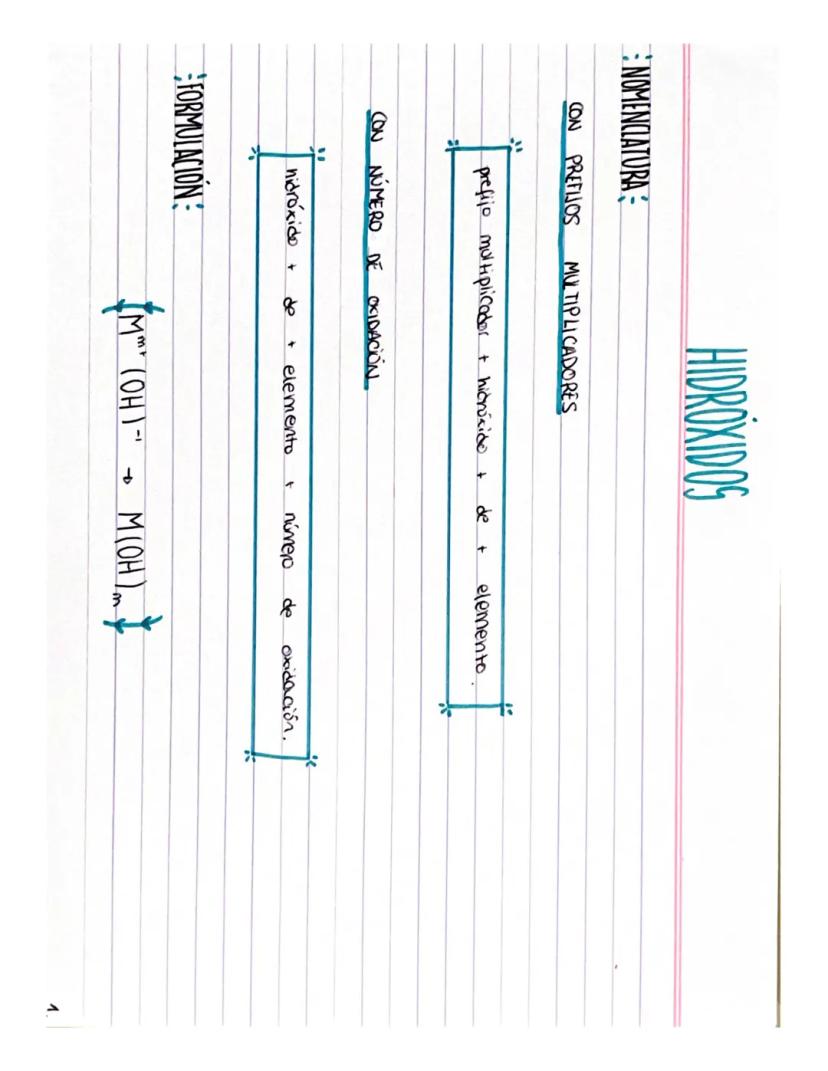 HIDRÓXIDOS
NOMENCLATURA:
CON PREFIJOS MULTIPLICADORES
prefijo multiplicador + hidróxido + de + elemento.
CON NÚMERO DE OXIDACIÓN
hidróxido + de + elemento + número de oxidación.
FORMULACIÓN:
Mᵐ⁺ (OH)⁻¹ → M(OH)ₘ
1